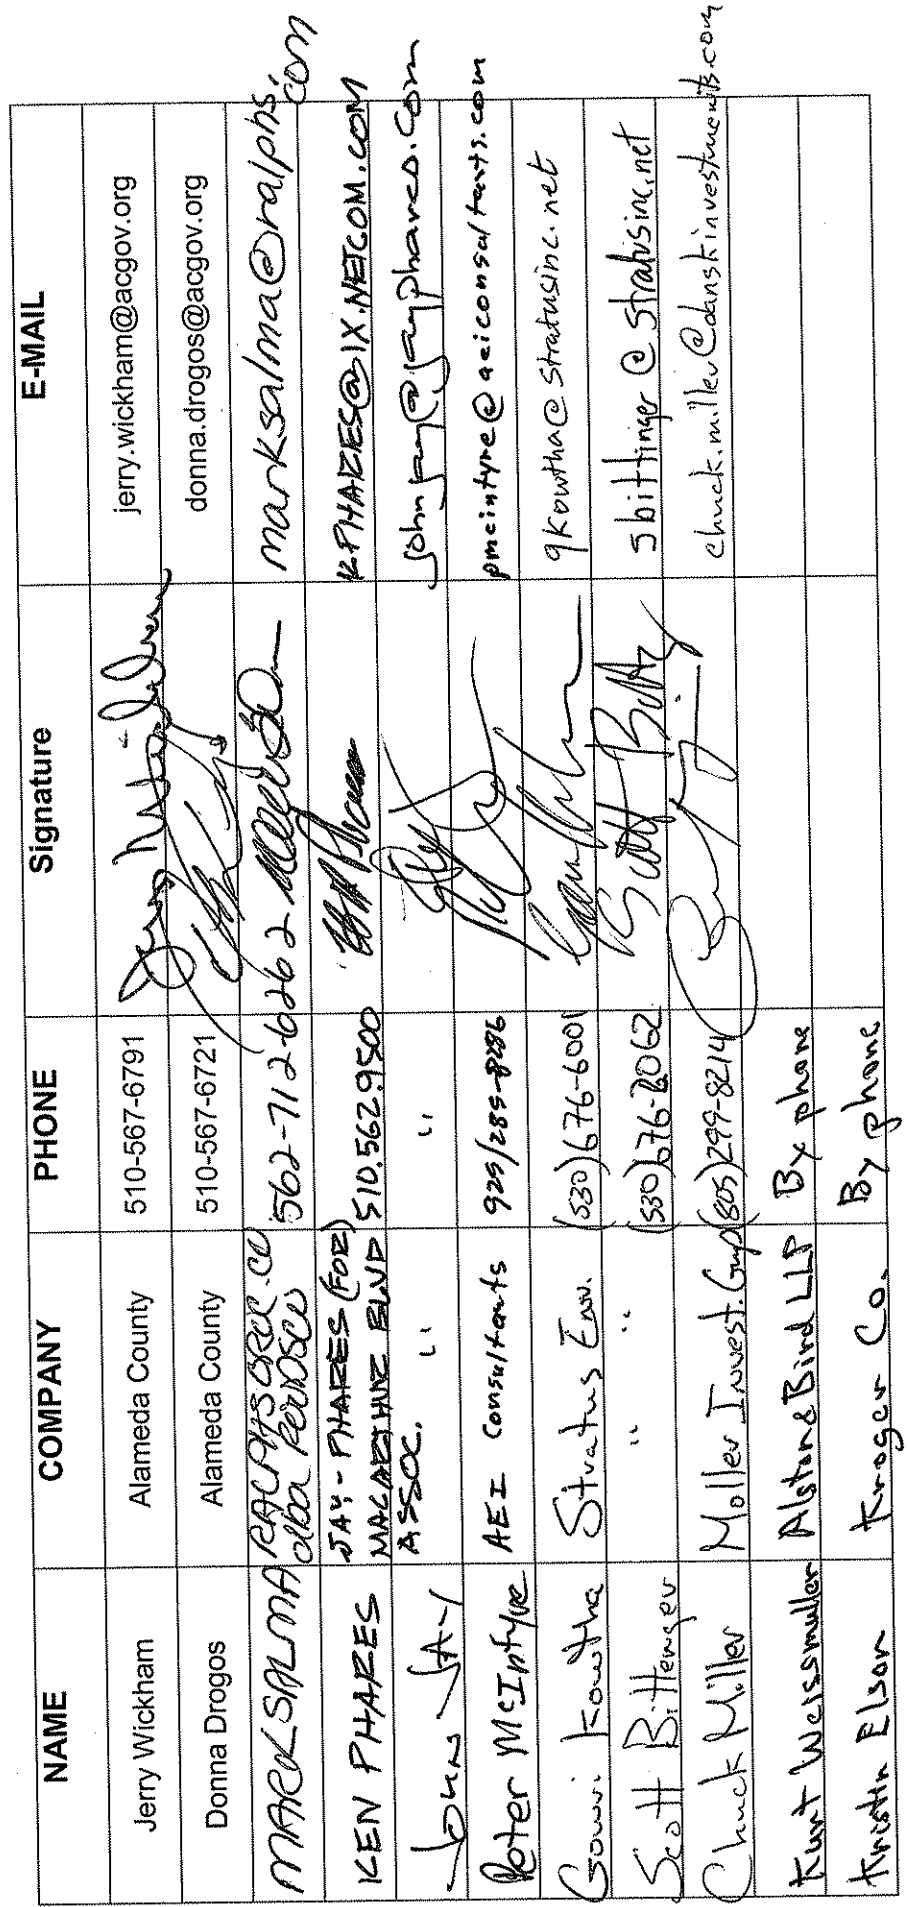 NAME COMPANY PHONE Signature E-MAIL
Jerry Wickham Alameda County 510-567-6791 jerry.wickham@acgov.org
Donna Drogos Alameda County 510-567-6721 donna.drogos@acgov.org
MARK SALMA RALPHS GROC. CO dba 562-712-6262 marksalma@ralphs.com
KEN PHARES JAY-PHARES (FOR) MACARTHUR BLVD ASSOC. 510.562.9500 KPHARES@IX.NETCOM.COM
JOHN JAY " " johnjay@jayphares.com
Peter McIntyre AEI Consultants 925/285- pmcintyre@aeiconsultants.com
Gowri Kowtha Stratus Env. (530)676-6001 gkowtha@stratusinc.net
Scott Bittinger " (530)676-2062 sbittinger@stratusinc.net
Chuck Miller Moller Invest. Grup (805)299-8214 chuck.miller@danskinvestments.com
Kurt Weissmuller Alston & Bird LLP By phone
Kristin Elson Kroger Co. By phone